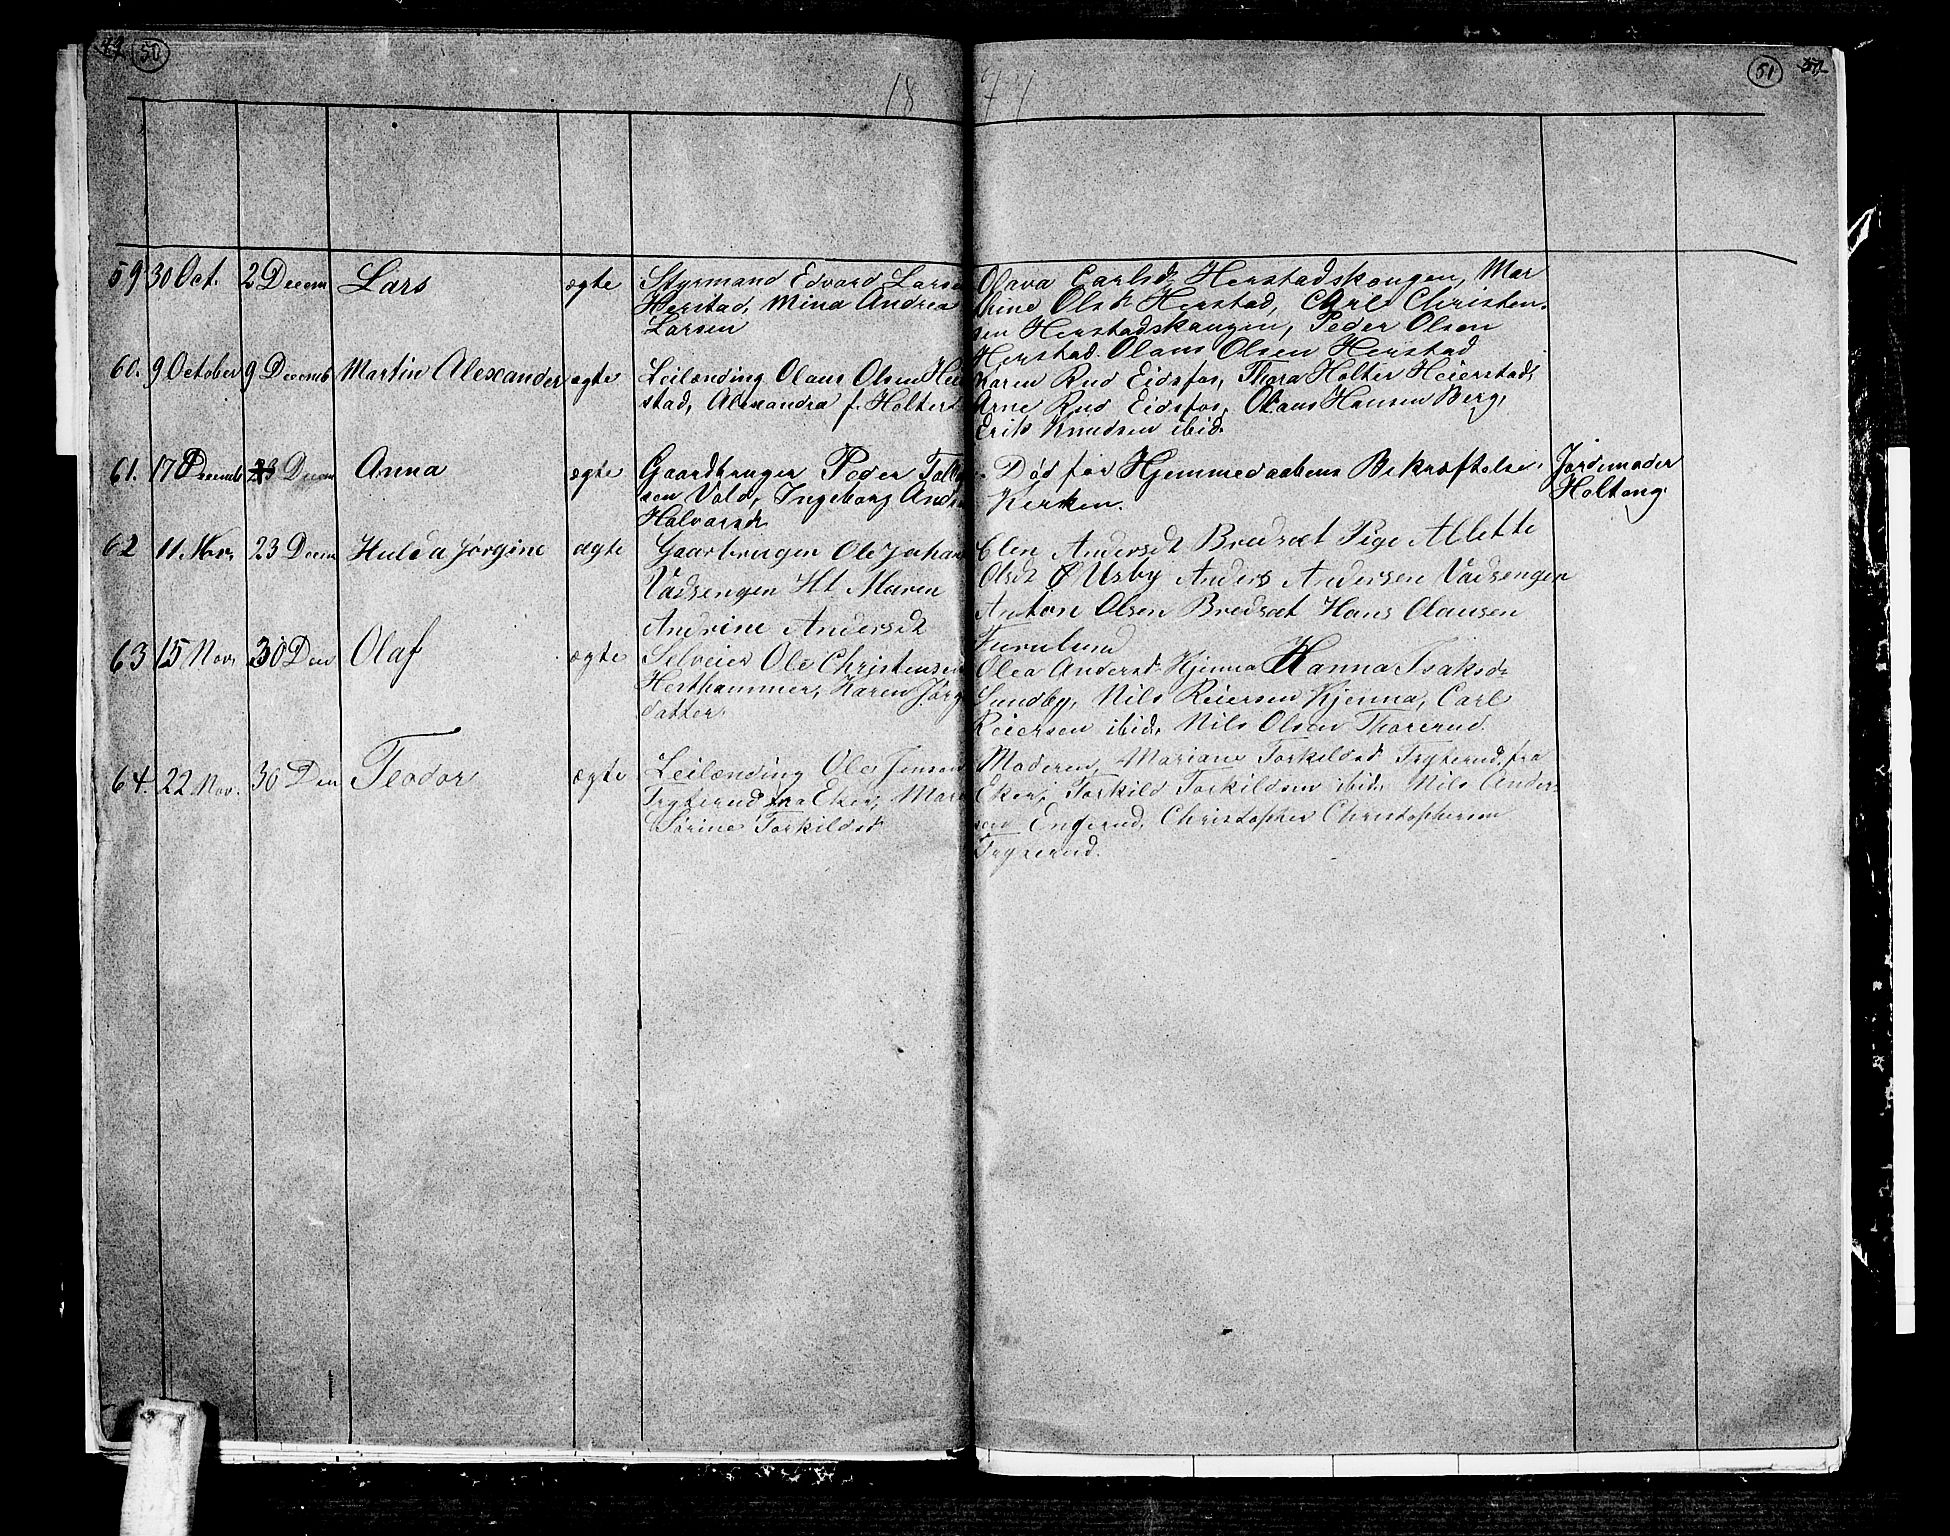 49 50
18
77
51 52
59 30 Oct. 2 Decem Lars ægte Styrmand Edvard Larsen
Herstad, Mina Andrea
Larsen
Olava Carlsd. Herstadskougen, Mar
thine Olsdt Herstad, Carl Christen-
sen Herstadskougen, Peder Olsen
Herstad. Olaus Olsen Herstad
60. 9 October 9 Decemb Martin Alexander ægte Leilænding Olaus Olsen Her
stad, Alexandra f. Holter
Karen Rud Eidsfos, Thora Holter Heierstad,
Arne Rud Eidsfos, Olaus Hansen Berg,
Erik Knudsen ibid.
61. 17 Decemb 23 Decem Anna ægte Gaardbruger Peder
sen Vold, Ingeborg
Halvorsdt
Død før Hjemmedaabens Bekræftelse i
Kirken.
Jordemoder
Holtung.
62 11. Nov. 23 Decem Hulda Jørgine ægte Gaarbrugen Ole Johan
Vadsengen Ht Maren
Andrine Andersdt
Elen Andersdt Bredsæt Pige Allette
Olsdt Ø Usby Anders Andersen Vadsengen
Anton Olsen Bredsæt Hans Olausen
Furulund
63 15 Nov. 30 Den Olaf ægte Selveier Ole Christensen
Hesthammer, Karen Jørg
datter.
Olea Andersd. Kjenna Hanna Isaksd.
Sundby, Nils Reiersen Kjenna, Carl
Reiersen ibid, Nils Olsen Thorerud.
64. 22 Nov. 30 Den Teodor ægte Leilænding Ole Jensen
Trgterud fra Eker, Mare
Sørine Torkildsd
Moderen, Mariane Torkildsd Trgterud, fra
Eker, Torkild Torkildsen ibid, Nils Ander-
sen Engerud, Christopher Christophersen
Trgterud.